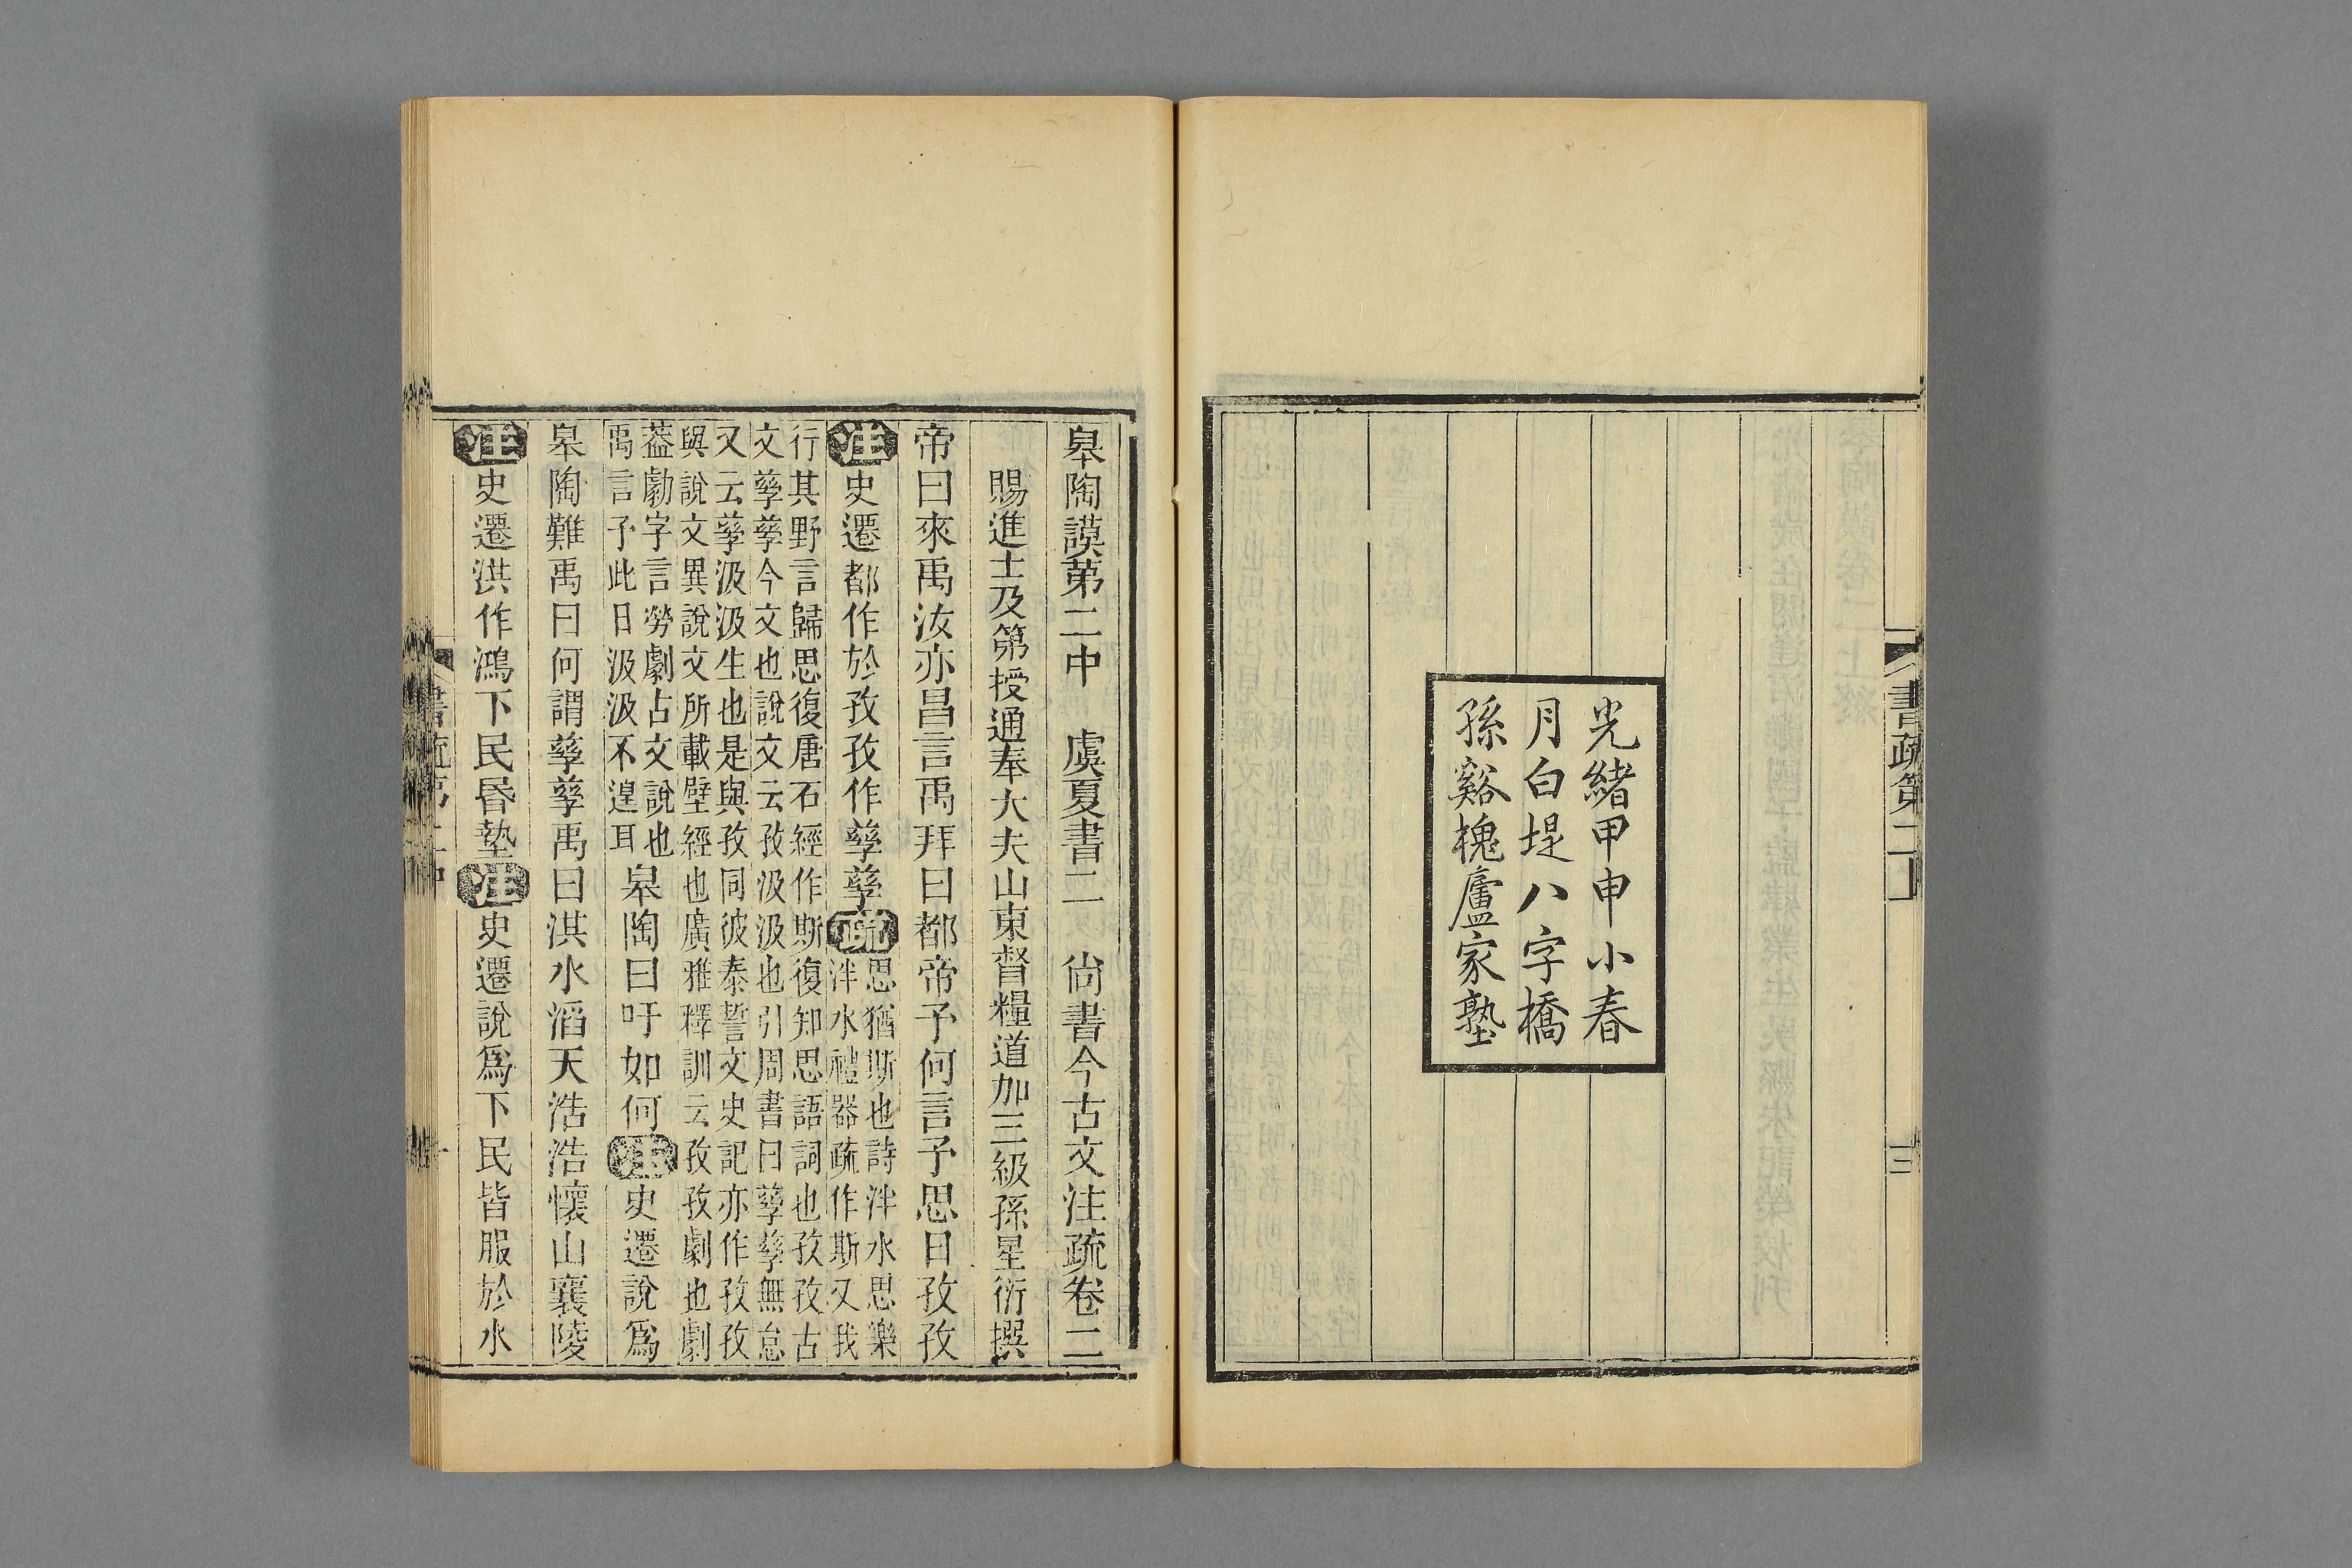 書疏第二上
三
光緒甲申小春
月白堤八字橋
孫谿槐廬家塾
皋陶謨第二中　虞夏書二　尙書今古文注疏卷二
賜進士及第授通奉大夫山東督糧道加三級孫星衍撰
帝曰來禹汝亦昌言禹拜曰都帝予何言予思日孜孜
注史遷都作於孜孜作孳孳疏思猶斯也詩泮水思樂
泮水禮器疏作斯又我
行其野言歸思復唐石經作斯復知思語詞也孜孜古
文孳孳今文也說文云孜汲汲也引周書曰孳孳無怠
又云孳汲汲生也是與孜同彼泰誓文史記亦作孜孜
與說文異說文所載壁經也廣雅釋訓云孜孜劇也劇
葢勮字言勞劇占文說也
禹言予此日汲汲不遑耳皋陶曰吁如何注史遷說爲
皋陶難禹曰何謂孳孳禹曰洪水滔天浩浩懷山襄陵
注史遷洪作鴻下民昬墊注史遷說爲下民皆服於水